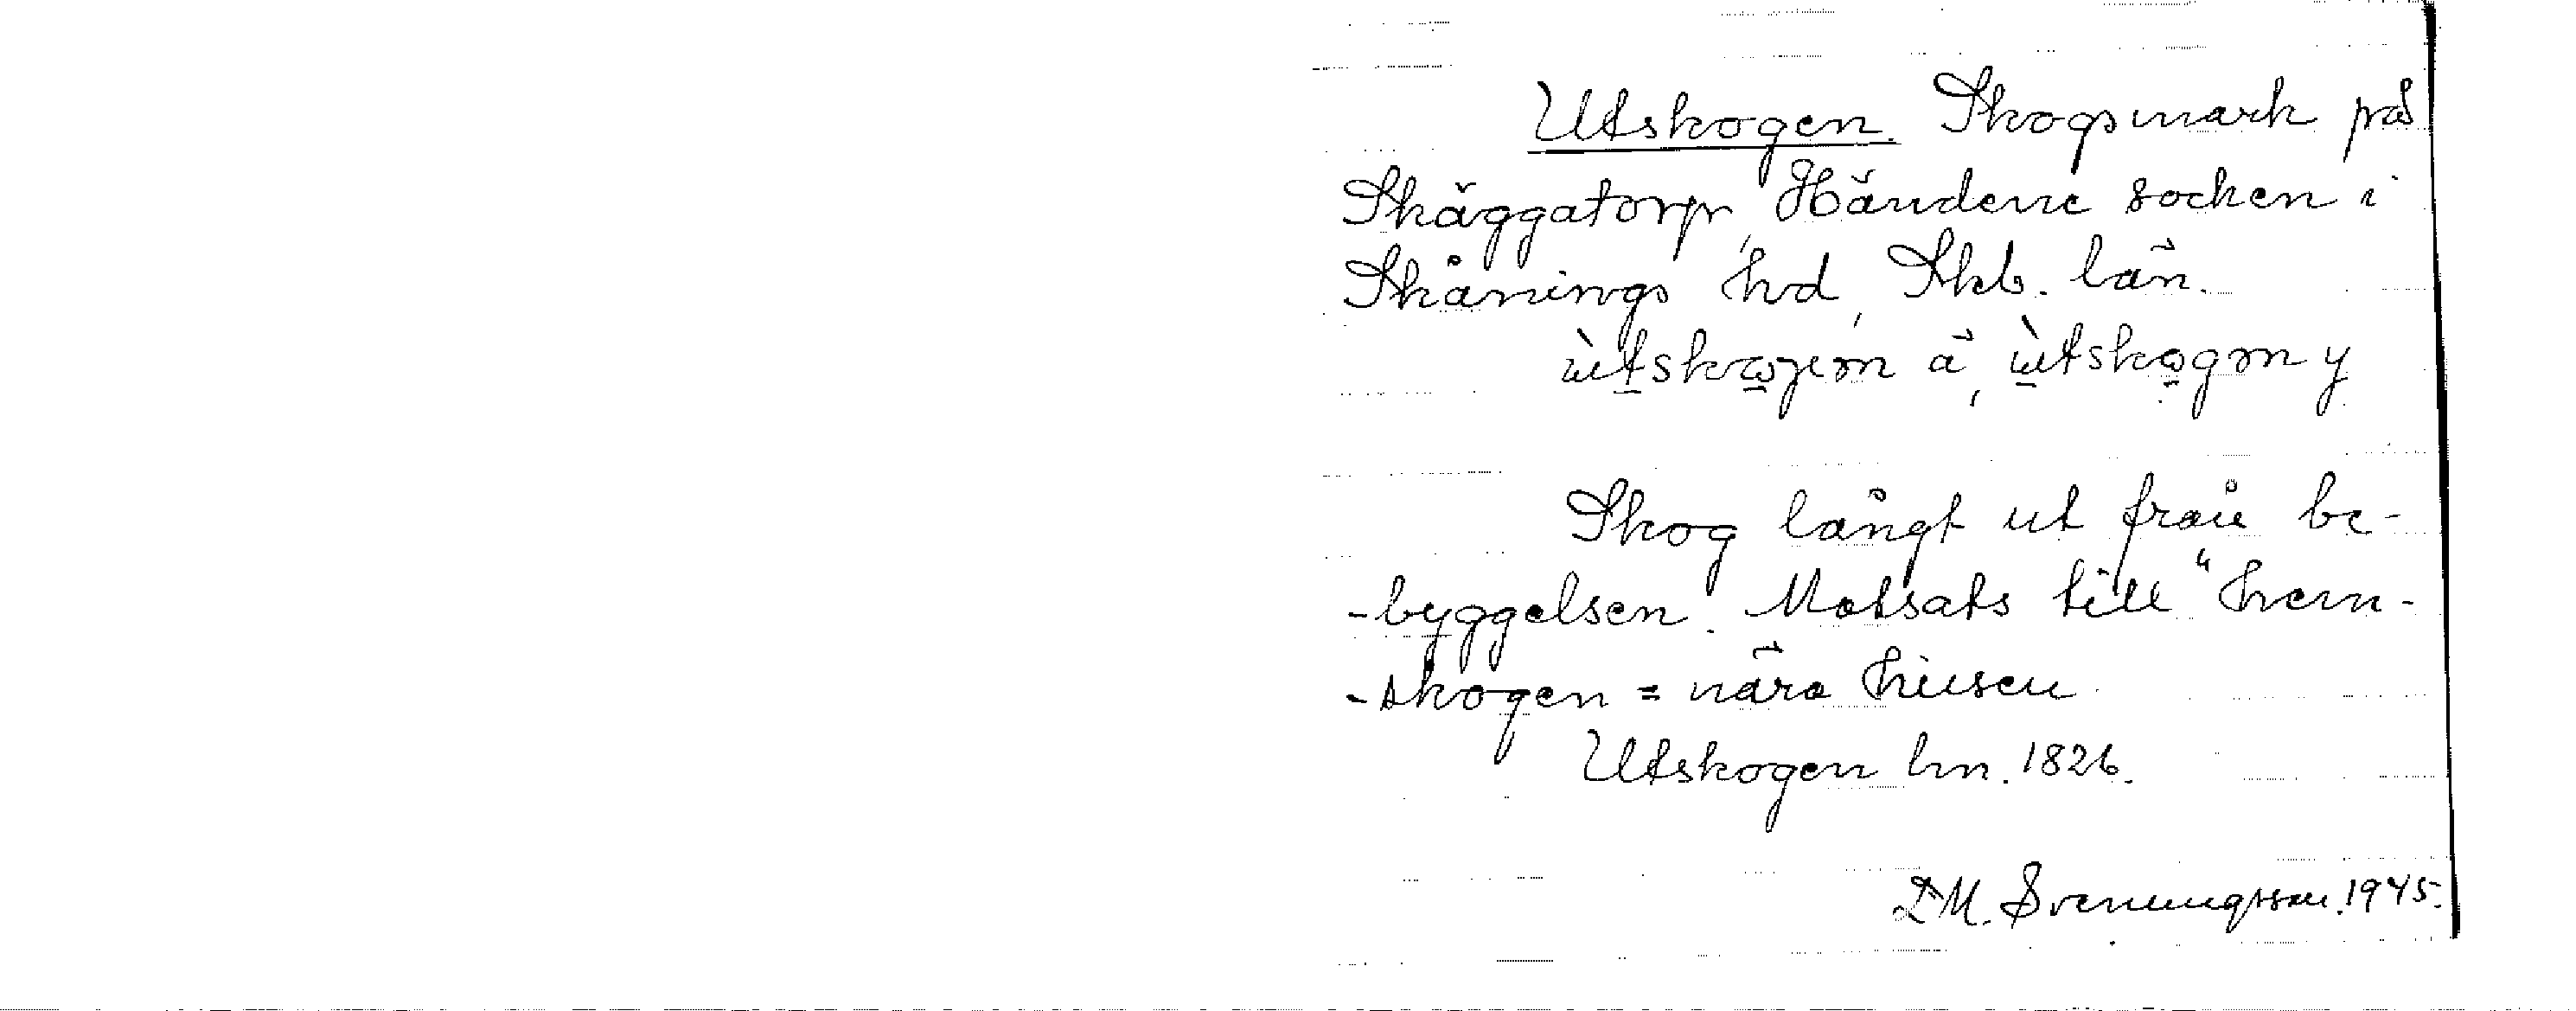 Utskogen. Skogsmark på
Skäggatorp, Händene socken i
Skånings hd, Skb. län.
ùtskωgen ä, ùtskogen y
Skog långt ut från be-
-byggelsen. Motsats till "hem-
-skogen = nära husen
Utskogen hn. 1826.
L M. Svenungsson. 1945.